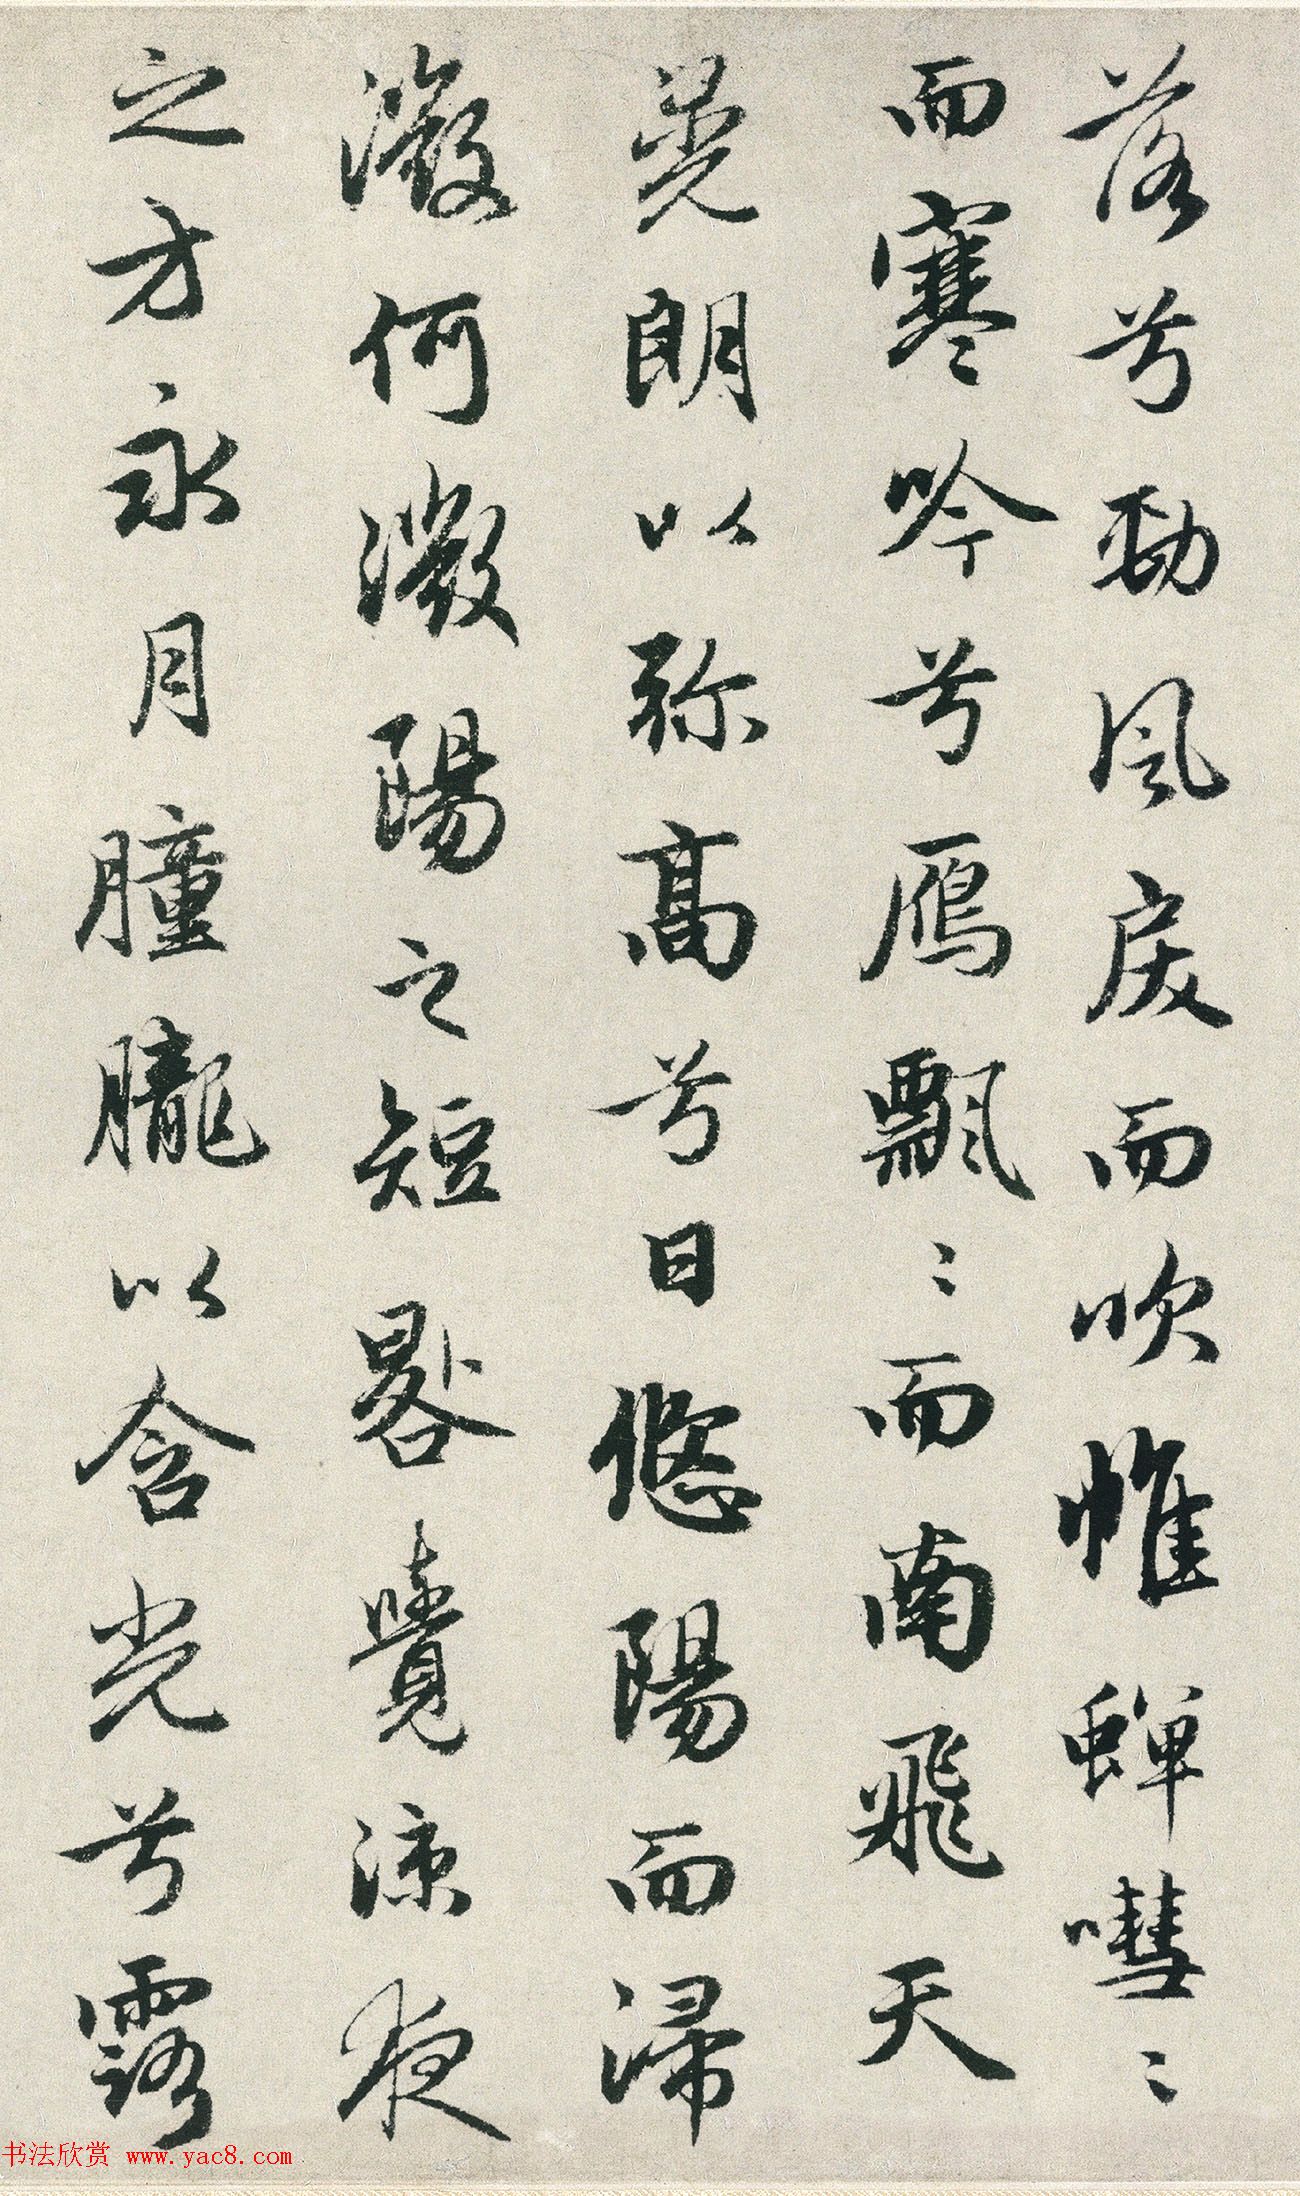 落兮劲风戾而吹帷蝉嘒〻
而寒吟兮雁飘〻而南飛天
晃朗以弥高兮日悠陽而浸
微何微陽之短晷覺涼夜
之方永月朣朧以含光兮露
书法欣赏 www.yac8.com